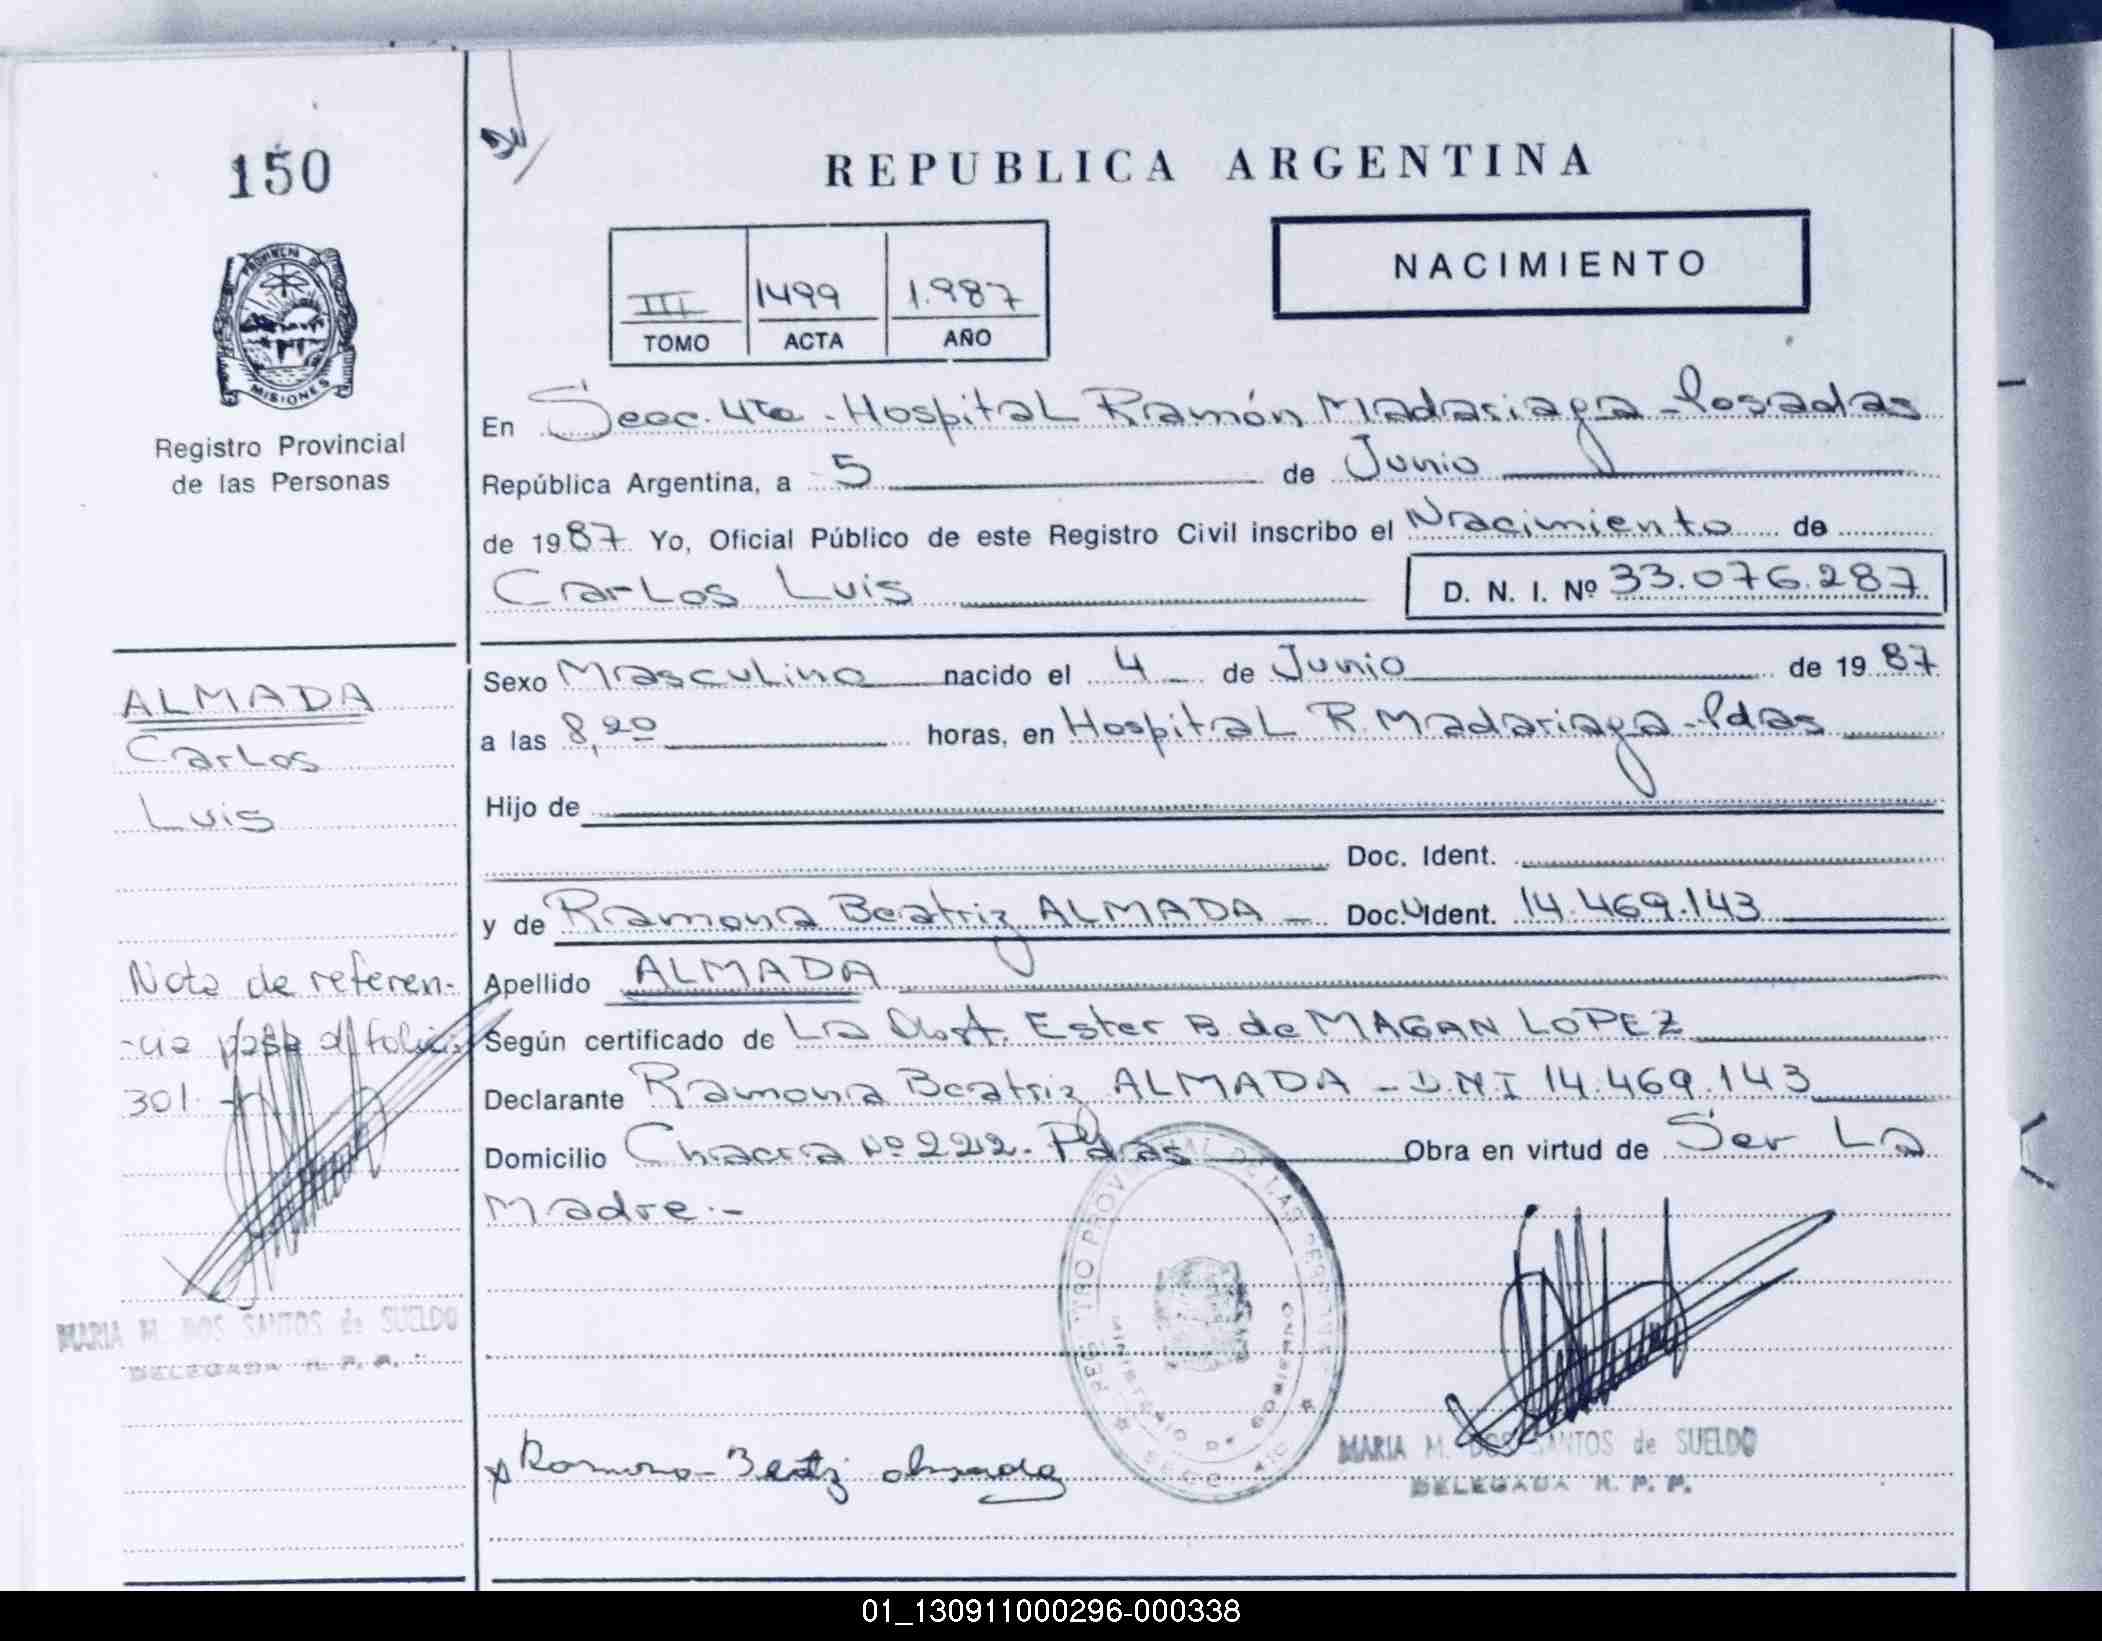 150
REPUBLICA ARGENTINA
NACIMIENTO
III 1499 1.987
TOMO ACTA AÑO
PROVINCIA DE
MISIONES
Registro Provincial
de las Personas
En Secc. 4ta - Hospital Ramón Madariaga - Posadas
República Argentina, a 5 de Junio
de 1987 Yo, Oficial Público de este Registro Civil inscribo el Nacimiento de
Carlos Luis D. N. I. Nº 33.076.287
Sexo Masculino nacido el 4 de Junio de 1987
a las 8,20 horas, en Hospital R. Madariaga - Pdas
Hijo de
Doc. Ident.
y de Ramona Beatriz ALMADA - Doc. Ident. 14.469.143
Apellido ALMADA
Según certificado de La Obst. Ester B. de MAGAN LOPEZ
Declarante Ramona Beatriz ALMADA - D.N.I 14.469.143
Domicilio Chacra Nº 222 - Pdas Obra en virtud de Ser La
Madre.-
ALMADA
Carlos
Luis
Nota de referen-
-cia pasa al folio
301
MARIA M. DOS SANTOS de SUELDO
DELEGADA R. P. P.
REGISTRO PROVINCIAL DE LAS PERSONAS
MINISTERIO DE GOBIERNO
SECC. 4ta
x Ramona Beatriz Almada
MARIA M. DOS SANTOS de SUELDO
DELEGADA R. P. P.
01_130911000296-000338